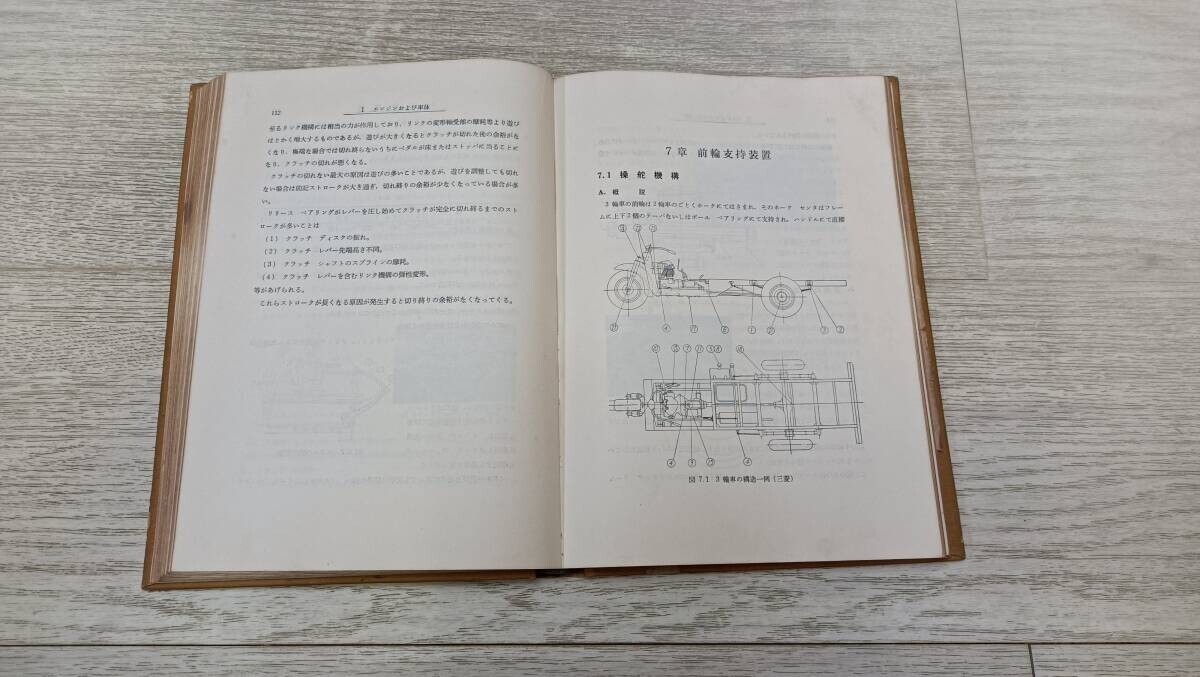 132
I エンジンおよび車体
至るリンク機構には相当の力が作用しており、リンクの変形軸受部の摩耗等より遊び
はとかく増大するものであるが、遊びが大きくなるとクラッチが切れた後の余裕がな
くなり、極端な場合では切れ終らないうちにペダルが床またはストッパに当ることに
なり、クラッチの切れが悪くなる。
クラッチの切れない最大の原因は遊びの多いことであるが、遊びを調整しても切れ
ない場合は前記ストロークが大き過ぎ、切れ終りの余裕が少なくなっている場合が多
い。
リリース ベアリングがレバーを圧し始めてクラッチが完全に切れ終るまでのスト
ロークが多いことは
(1) クラッチ ディスクの振れ。
(2) クラッチ レバー先端高さ不同。
(3) クラッチ シャフトのスプラインの摩耗。
(4) クラッチ レバーを含むリンク機構の弾性変形。
等があげられる。
これらストロークが長くなる原因が発生すると切り終りの余裕がなくなってくる。
7章 前輪支持装置
7.1 操舵機構
A. 概 説
3輪車の前輪は2輪車のごとくホークにてはさまれ、そのホーク センタはフレー
ムに上下2個のテーパないしはボール ベアリングにて支持され、ハンドルにて直接
図 7.1 3輪車の構造一例 (三菱)